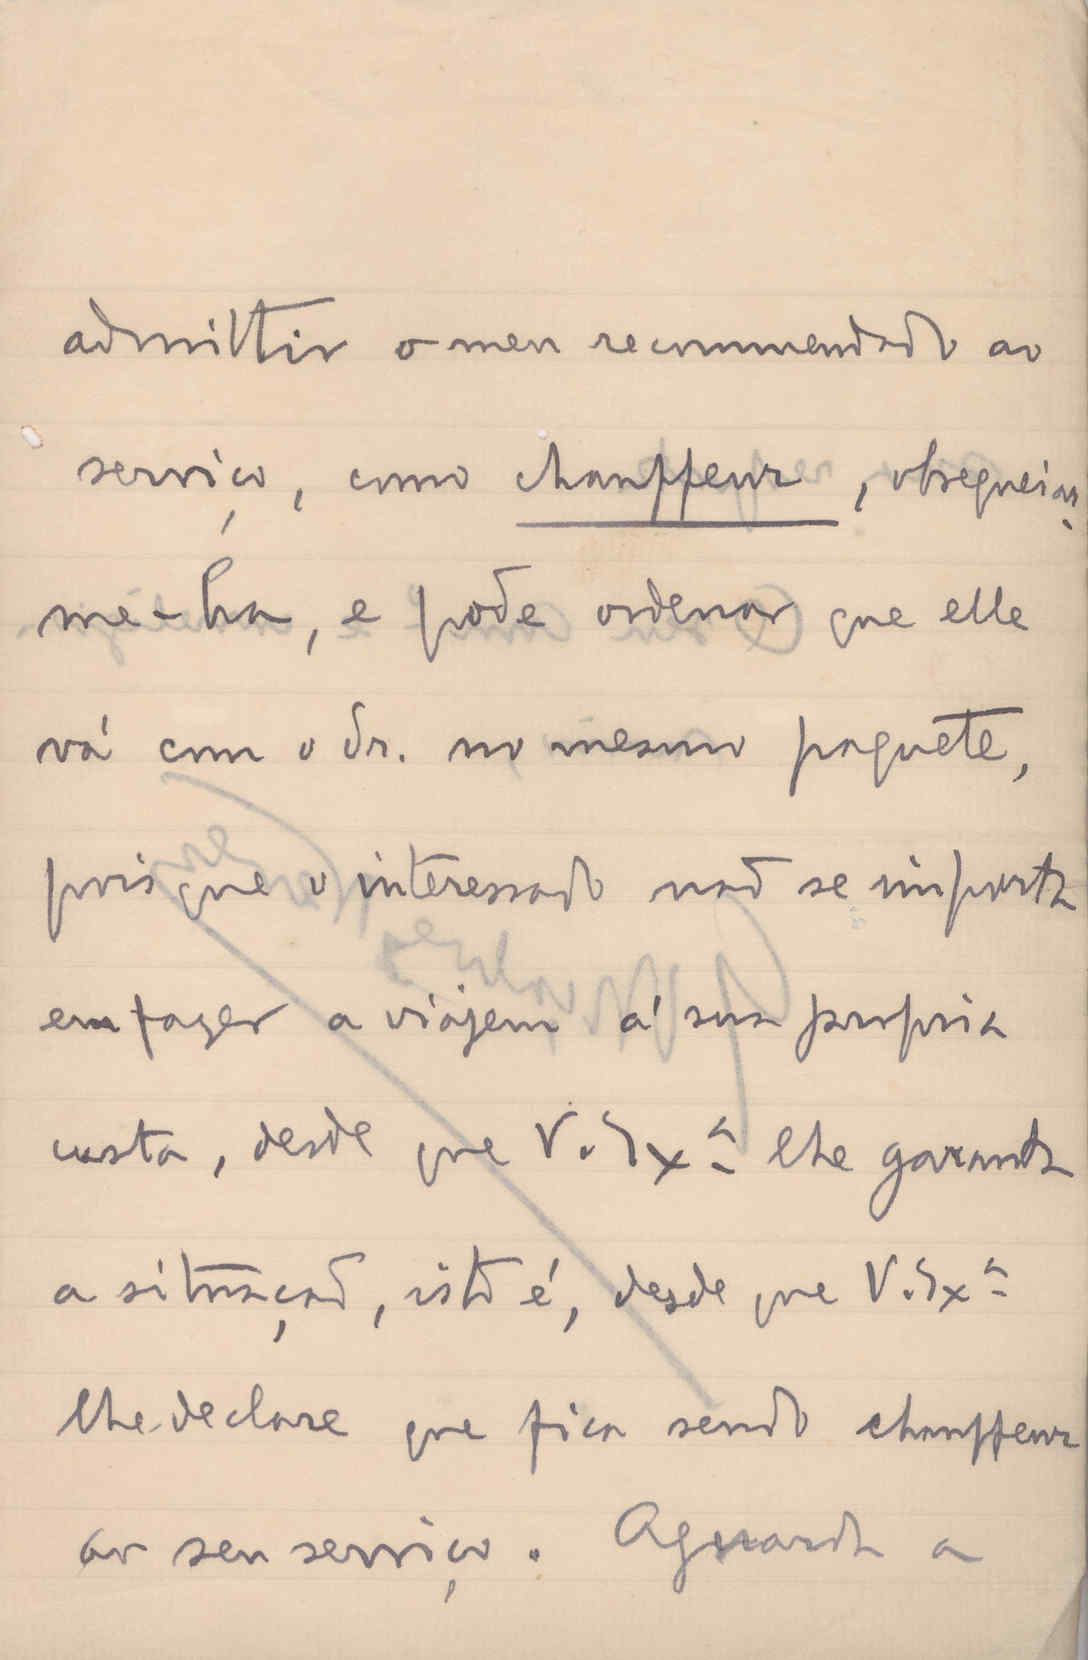 admittir o meu recommendado ao
serviço, como chauffeur, obsequeiar
me-ha, e pode ordenar que elle
vá com o dr. no mesmo paquete,
pois que o interessado não se importa
em fazer a viajem á sua propria
custa, desde que V. Exª lhe garanta
a situação, isto é, desde que V. Exª
lhe declare que fica sendo chauffeur
ao seu serviço. Aguarda a